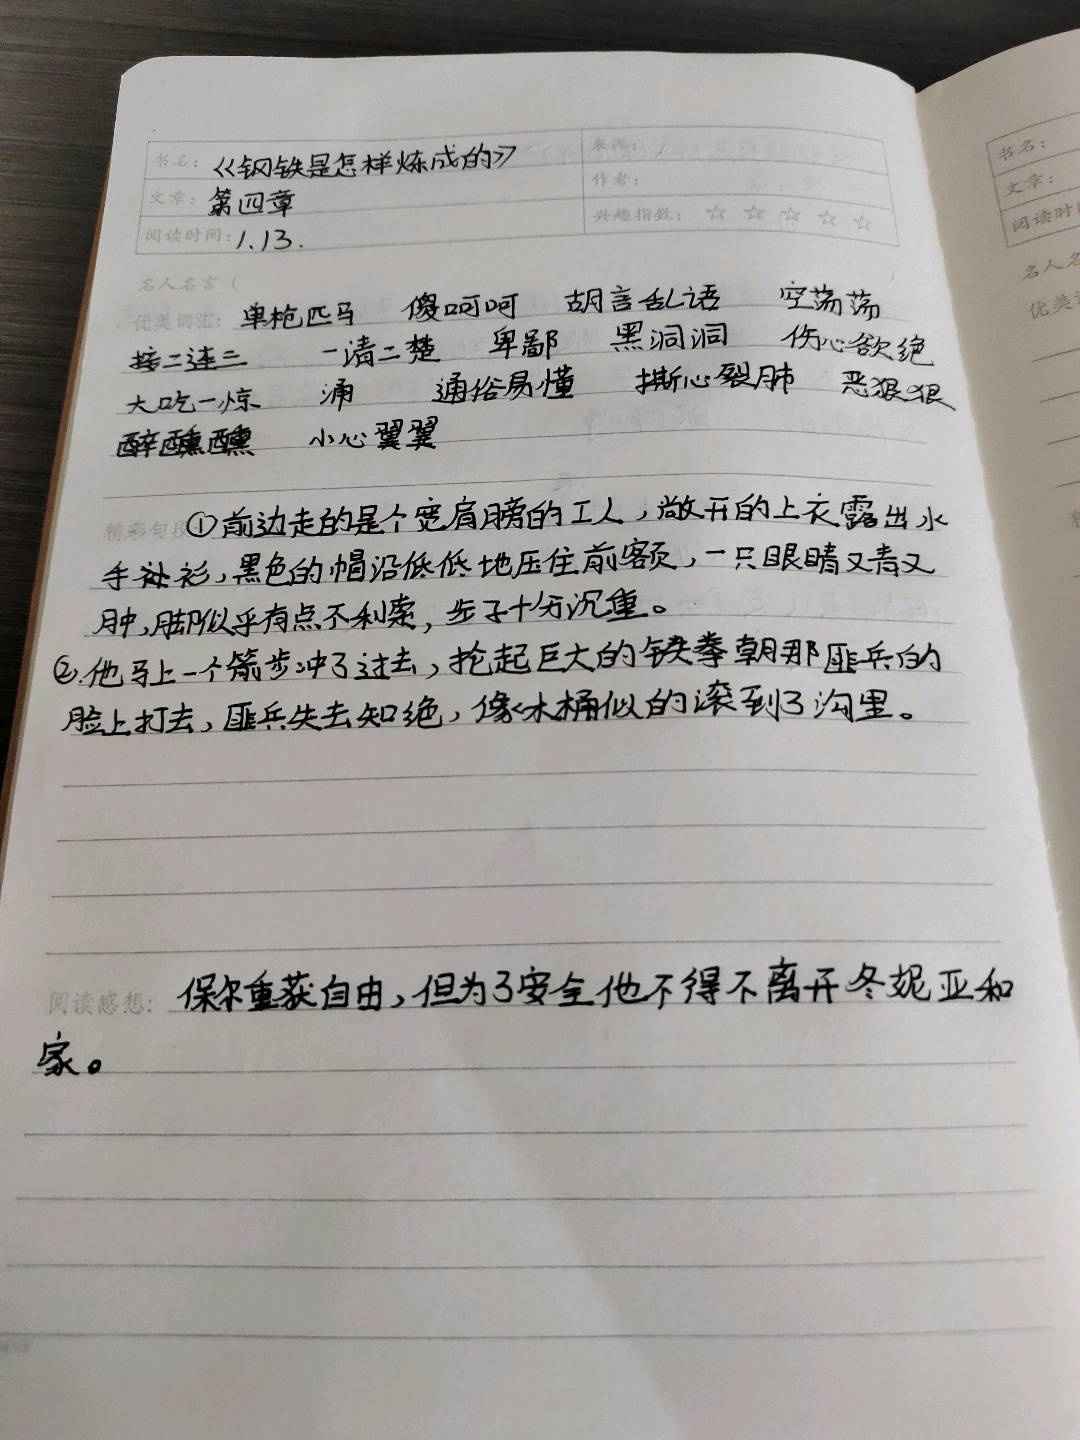 书名：《钢铁是怎样炼成的》 来源：
文章：第四章 作者：
阅读时间：1.13. 兴趣指数：☆ ☆ ☆ ☆ ☆
名人名言（ ）
优美词汇：单枪匹马 傻呵呵 胡言乱语 空荡荡
接二连三 一清二楚 卑鄙 黑洞洞 伤心欲绝
大吃一惊 涌 通俗易懂 撕心裂肺 恶狠狠
醉醺醺 小心翼翼
精彩句段 ①前边走的是个宽肩膀的工人，敞开的上衣露出水
手衫，黑色的帽沿低低地压住前额，一只眼睛又青又
肿，脚似乎有点不利索，步子十分沉重。
②.他马上一个箭步冲了过去，抡起巨大的铁拳朝那匪兵的
脸上打去，匪兵失去知绝，像木桶似的滚到了沟里。
阅读感想：保尔重获自由，但为了安全他不得不离开冬妮亚和
家。
书名：
文章：
阅读时
名人名
优美